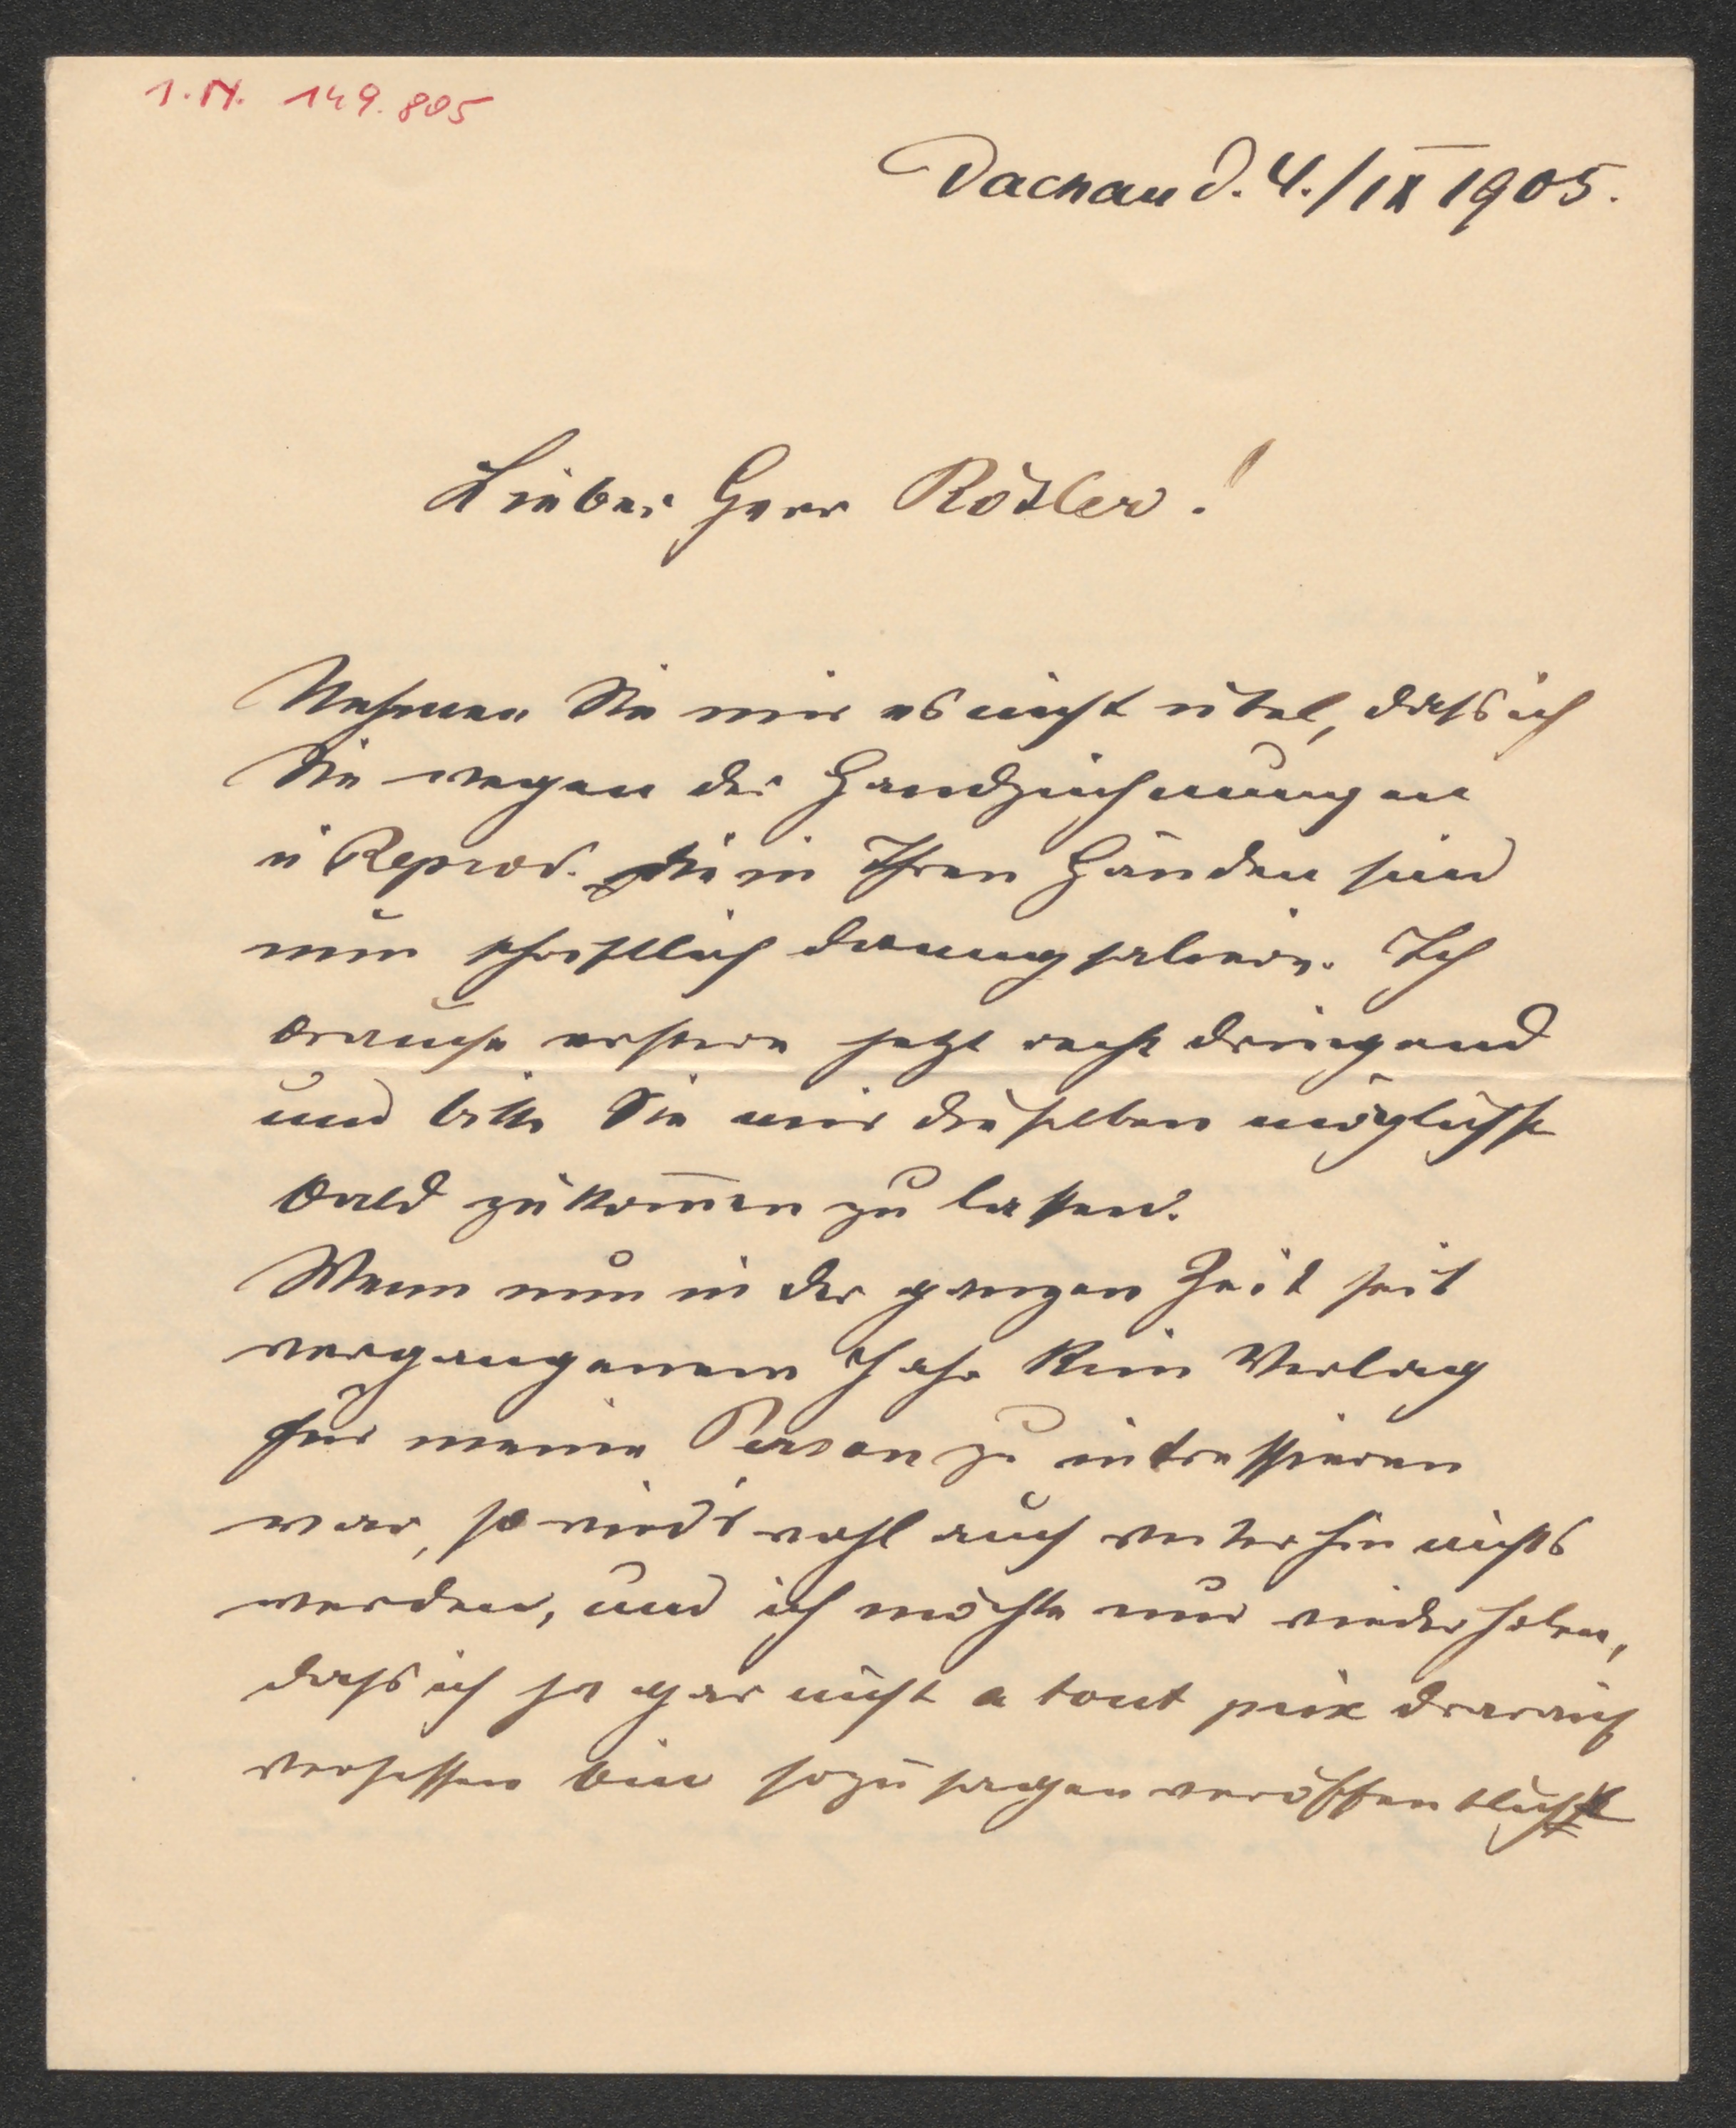 I.N. 149.805
Dachau d. 4./IX 1905.
Lieber Herr Rösler!
Nehmen Sie mir es nicht übel, dass ich
Sie wegen der Handzeichnungen
u Reprod. die in Ihren Händen sind
nun schriftlich drangsaliere. Ich
brauche erstere jetzt recht dringend
und bitte Sie mir dieselben möglichst
bald zukom̄en zu lassen.
Wenn nun in der ganzen Zeit seit
vergangenem Jahr kein Verlag
für meine Person zu intressieren
war, so wird's wohl auch weiterhin nichts
werden, und ich möchte nur wiederholen,
dass ich ja gar nicht a tout prix darauf
versessen bin sozusagen veröffentlicht